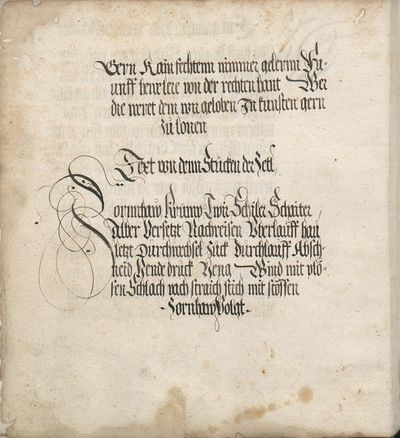 Gern Kain fechtenn nimmer gelernn Fü-
unff hew lere von der rechten hant Wer
die weret dem wir geloben In kunsten gern
zü lonen
Text von denn Stucken der Zetl
Zornhaw Krump Twir Schiler Schaiter
Alber Versetzt Nachreisen Vberlauff haw
letzt Durchwechsel Zuck durchlauff Absch-
neid Hende druck Heng Wind mit plö-
sen Schlach vach straich stich mit stössen
Zornhaw Volgt